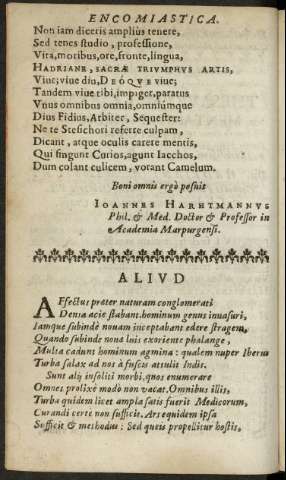 ENCOMIASTICA.
Non iam diceris ampliùs tenere,
Sed tenes studio, professione,
Vita, moribus, ore, fronte, lingua,
HADRIANE, SACRÆ TRIVMPHVS ARTIS,
Viue; viue diu, DEÓQVE viue;
Tandem viue tibi, impiger, paratus
Vnus omnibus omnia, omniúmque
Dius Fidius, Arbiter, Sequester:
Ne te Stesichori referre culpam,
Dicant, atque oculis carere mentis,
Qui fingunt Curios, agunt Iacchos,
Dum colant culicem, vorant Camelum.
Boni omnis ergò posuit
IOANNES HARHTMANNVS
Phil. & Med. Doctor & Professor in
Academia Marpurgensi.
ALIVD
AFfectus præter naturam conglomerati
Densa acie stabant, hominum genus inuasuri,
Iamque subindè nouam inceptabant edere stragem,
Quando subindè noua luis exoriente phalange,
Multa cadunt hominum agmina: qualem nuper Iberus
Turba salax ad nos à fuscis attulit Indis.
Sunt alij insoliti morbi, quos enumerare
Omnes, prolixè modò non vacat. Omnibus illis,
Turba quidem licet ampla satis fuerit Medicorum,
Curandi certe non sufficit. Ars equidem ipsa
Sufficit & methodus: Sed queis propellitur hostis,